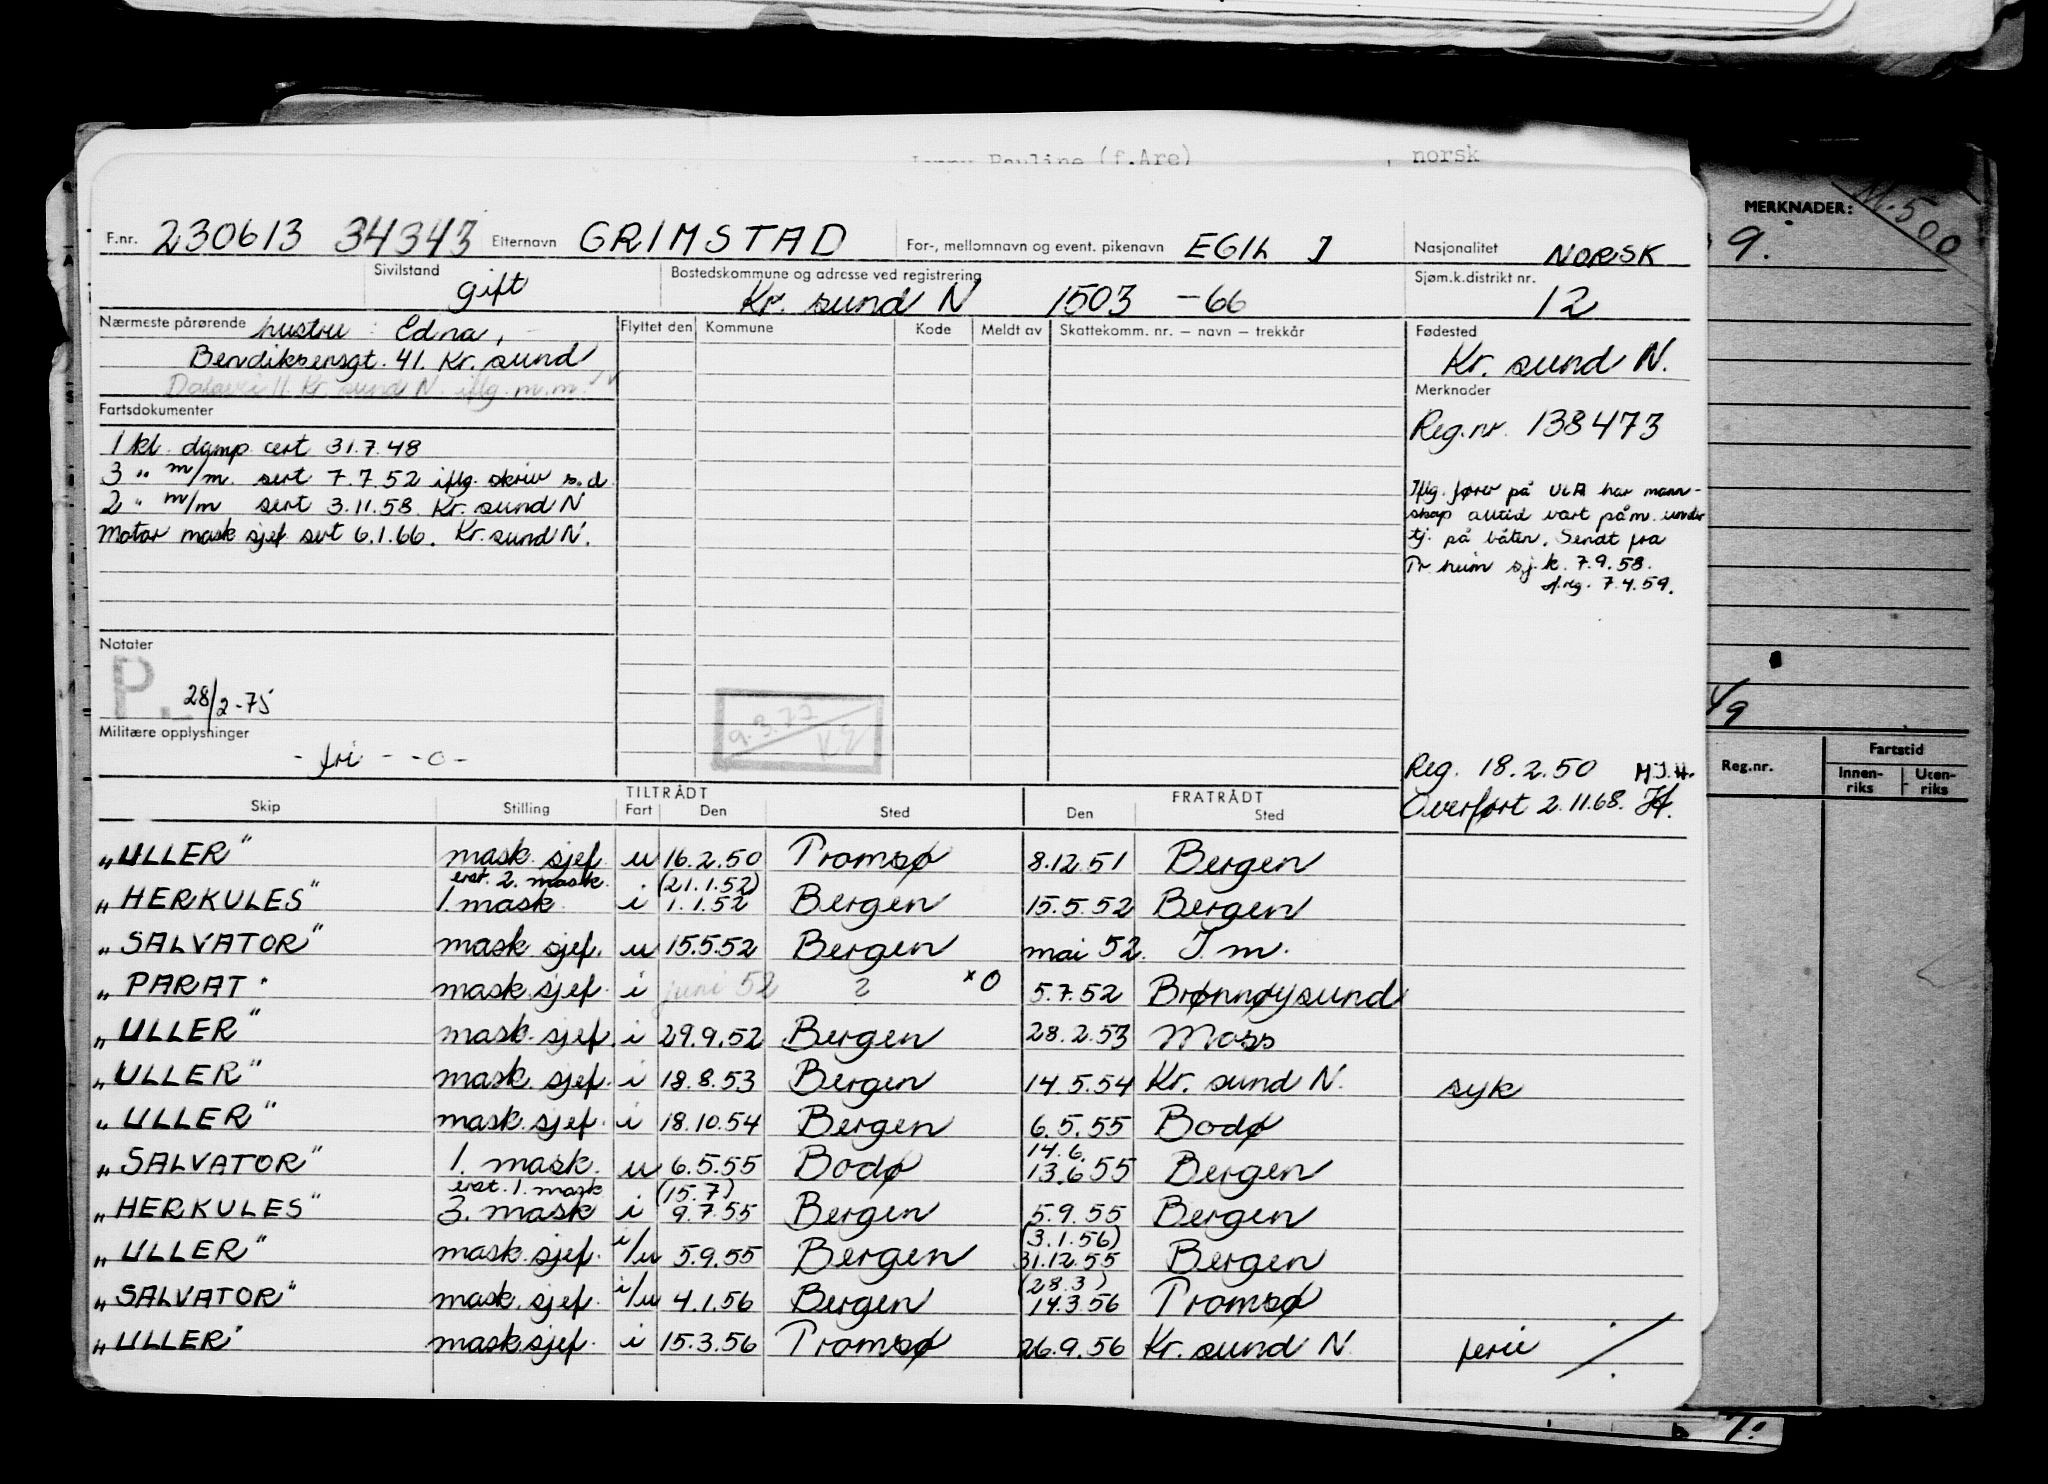 Pauline (f.Are) , norsk
MERKNADER: M.500
9.
F.nr. 230613 34343 Etternavn GRIMSTAD For-, mellomnavn og event. pikenavn EGIL J Nasjonalitet NORSK
Sivilstand gift Bostedskommune og adresse ved registrering Kr. sund N 1503 -66 Sjøm.k.distrikt nr. 12
Nærmeste pårørende hustru : Edna, Flyttet den Kommune Kode Meldt av Skattekomm. nr. – navn – trekkår Fødested
Bendiksensgt. 41. Kr. sund Kr. sund N.
Kr. sund N. iflg. m.m. Merknader
Fartsdokumenter Reg.nr. 138473
1 kl. damp cert 31.7.48
3 " m/m. sert 7.7.52 iflg. skriv s.d
2 " m/m sert 3.11.58. Kr. sund N
motor mask sjef sert 6.1.66. Kr. sund N.
Iflg. fører på ULA har mann-
skap alltid vært påm. under
tj. på båten. Sendt fra
Tr.heim sj.k. 7.9.58.
7.4.59.
Notater
P. 28/2-75
9.3.77
Militære opplysninger
- fri - - 0 -
Reg. 18.2.50 M.J.H.
Overført 2.11.68.
Reg.nr. Fartstid
Innen-riks Uten-riks
TILTRÅDT FRATRÅDT
Skip Stilling Fart Den Sted Den Sted
"ULLER" mask. sjef u 16.2.50 Tromsø 8.12.51 Bergen
erst. 2. mask. (21.1.52)
"HERKULES" 1. mask. i 1.1.52 Bergen 15.5.52 Bergen
"SALVATOR" mask. sjef. u 15.5.52 Bergen mai 52. T.m.
"PARAT" mask. sjef. i juni 52 ? *0 5.7.52 Brønnøysund
"ULLER" mask. sjef. i 29.9.52 Bergen 28.2.53 Moss
"ULLER" mask. sjef. i 18.8.53 Bergen 14.5.54 Kr. sund N. syk
"ULLER" mask. sjef. i 18.10.54 Bergen 6.5.55 Bodø
14.6.
"SALVATOR" 1. mask. u 6.5.55 Bodø 13.6.55 Bergen
erst. 1. mask (15.7)
"HERKULES" 3. mask i 9.7.55 Bergen 5.9.55 Bergen
(3.1.56)
"ULLER" mask. sjef. i/u 5.9.55 Bergen 31.12.55 Bergen
(28.3)
"SALVATOR" mask. sjef. i/u 4.1.56 Bergen 14.3.56 Tromsø
"ULLER" mask sjef. i 15.3.56 Tromsø 26.9.56 Kr. sund N. ferie